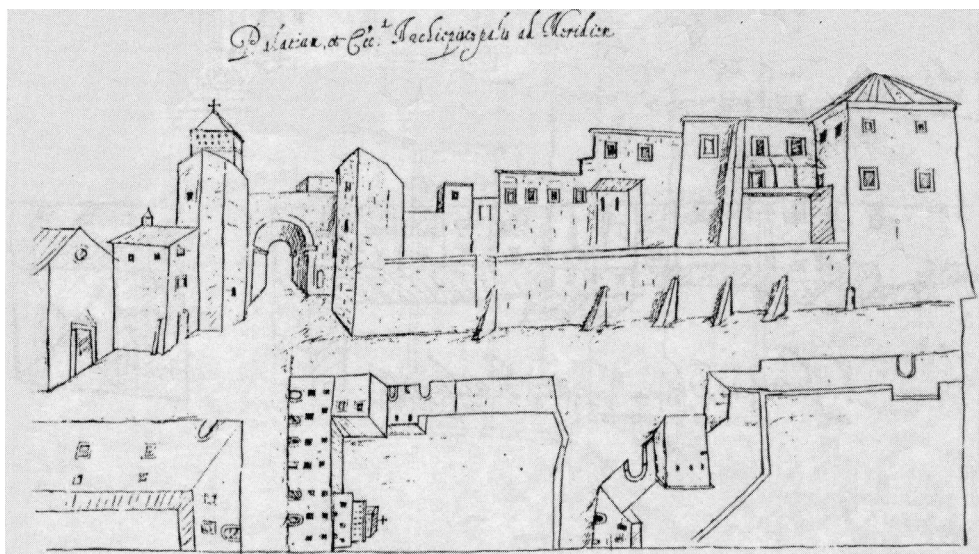 Palatium, et Cec.ᵃ Archiepiscopalis ad Meridiem